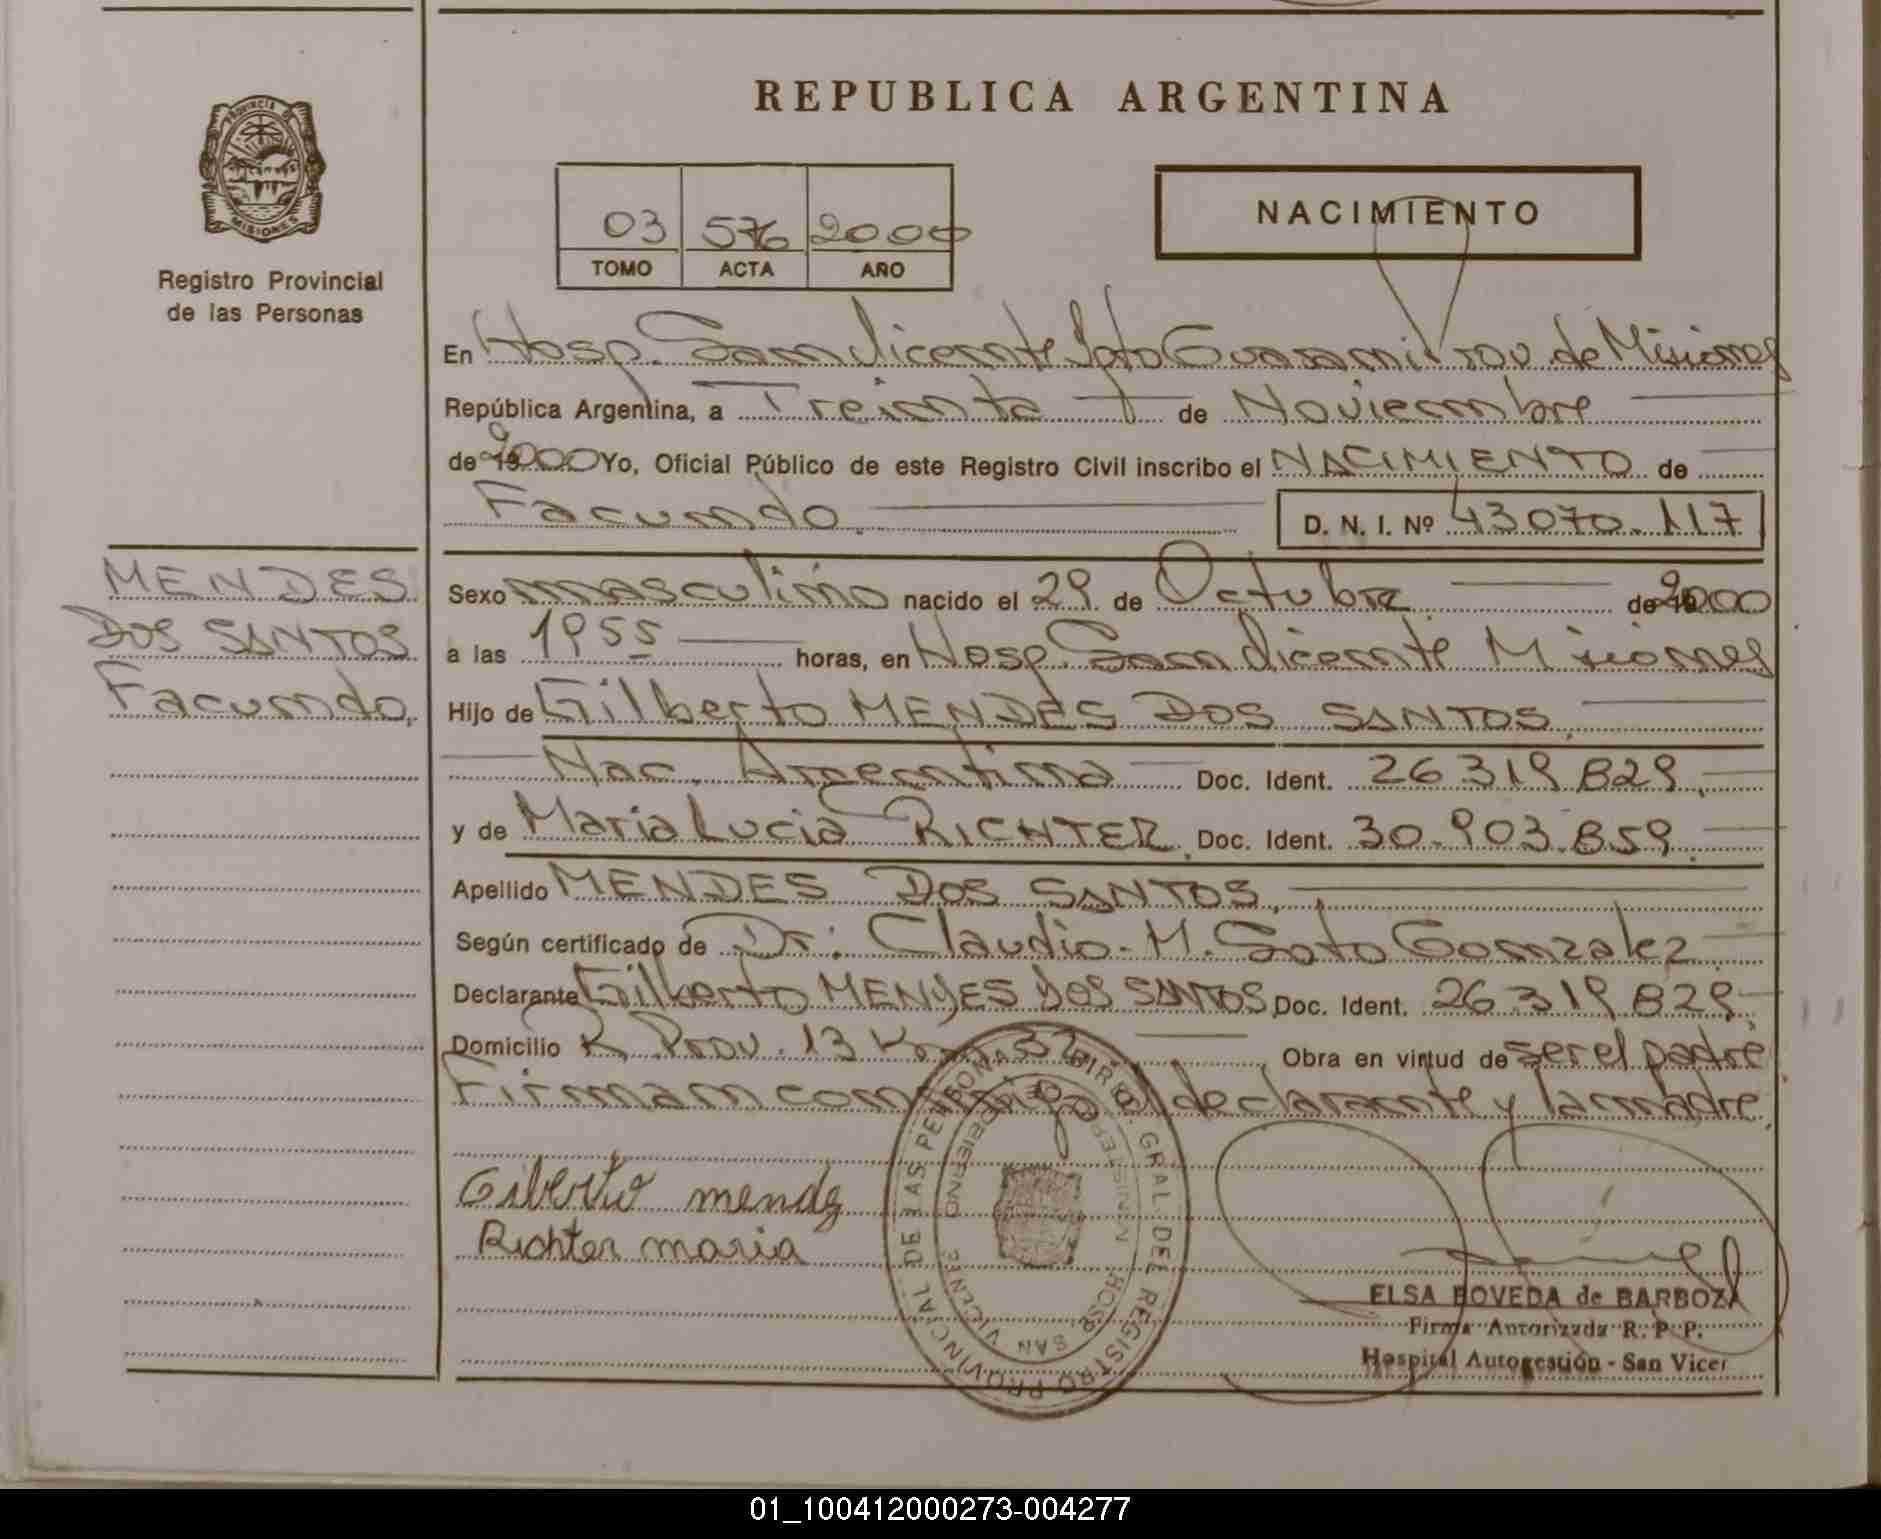 REPUBLICA ARGENTINA
PROVINCIA DE
MISIONES
Registro Provincial
de las Personas
03 576 2000
TOMO ACTA AÑO
NACIMIENTO
En Hosp. San Vicente Dpto Guarani Prov. de Misiones
República Argentina, a Treinta de Noviembre
de 2000 Yo, Oficial Público de este Registro Civil inscribo el NACIMIENTO de
Facundo.
D. N. I. Nº 43.070.117
MENDES
DOS SANTOS
Facundo.
Sexo masculino nacido el 29 de Octubre de 2000
a las 1955 horas, en Hosp. San Vicente Misiones
Hijo de Gilberto MENDES DOS SANTOS.
Nac. Argentina Doc. Ident. 26.319.829.
y de Maria Lucia RICHTER. Doc. Ident. 30.903.859.
Apellido MENDES DOS SANTOS.
Según certificado de Dr: Claudio. M. Soto Gonzalez.
Declarante Gilberto MENDES DOS SANTOS Doc. Ident. 26.319.829
Domicilio R. Prov. 13 Km. 32 Obra en virtud de ser el padre.
Firman conmigo el declarante y la madre.
Gilberto mendez
Richter maria
DIR. GRAL. DEL REGISTRO PROVINCIAL DE LAS PERSONAS
MINISTERIO DE GOBIERNO
HOSP. SAN VICENTE
ELSA BOVEDA de BARBOZA
Firma Autorizada R. P. P.
Hospital Autogestión - San Vicen
01_100412000273-004277